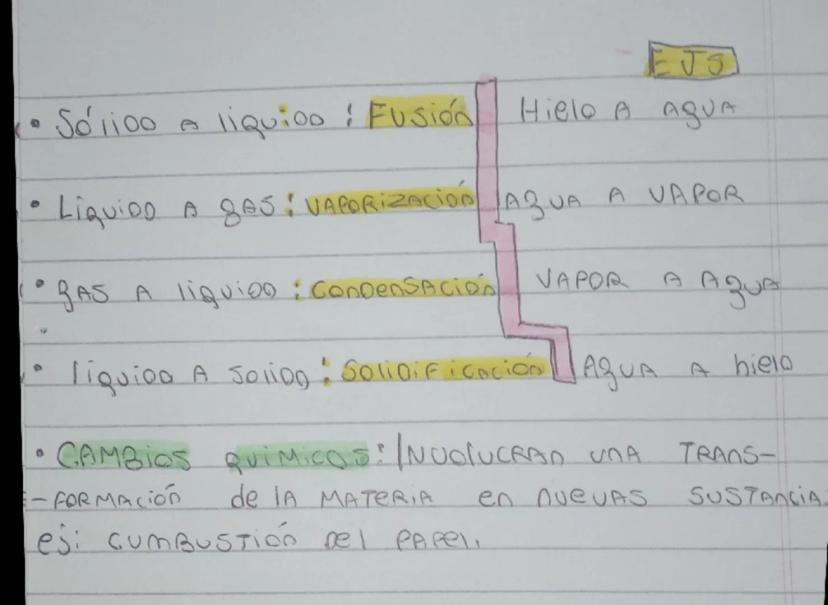 EJS
• Sólido A líquido : Fusión Hielo A AguA
• Líquido A gAS : VAPORIZACIÓN AguA A VAPOR
• gAS A líquido : CondenSACión VAPOR A AguA
• líquido A Solido : Solidificación AguA A hielo
• CAMBios químicos: INVOLUCRAN unA TRANS-
-FORMACión de lA MATERIA en nuevAS SUSTANCIA
ej: CUMBUSTión DEl PAPEl.